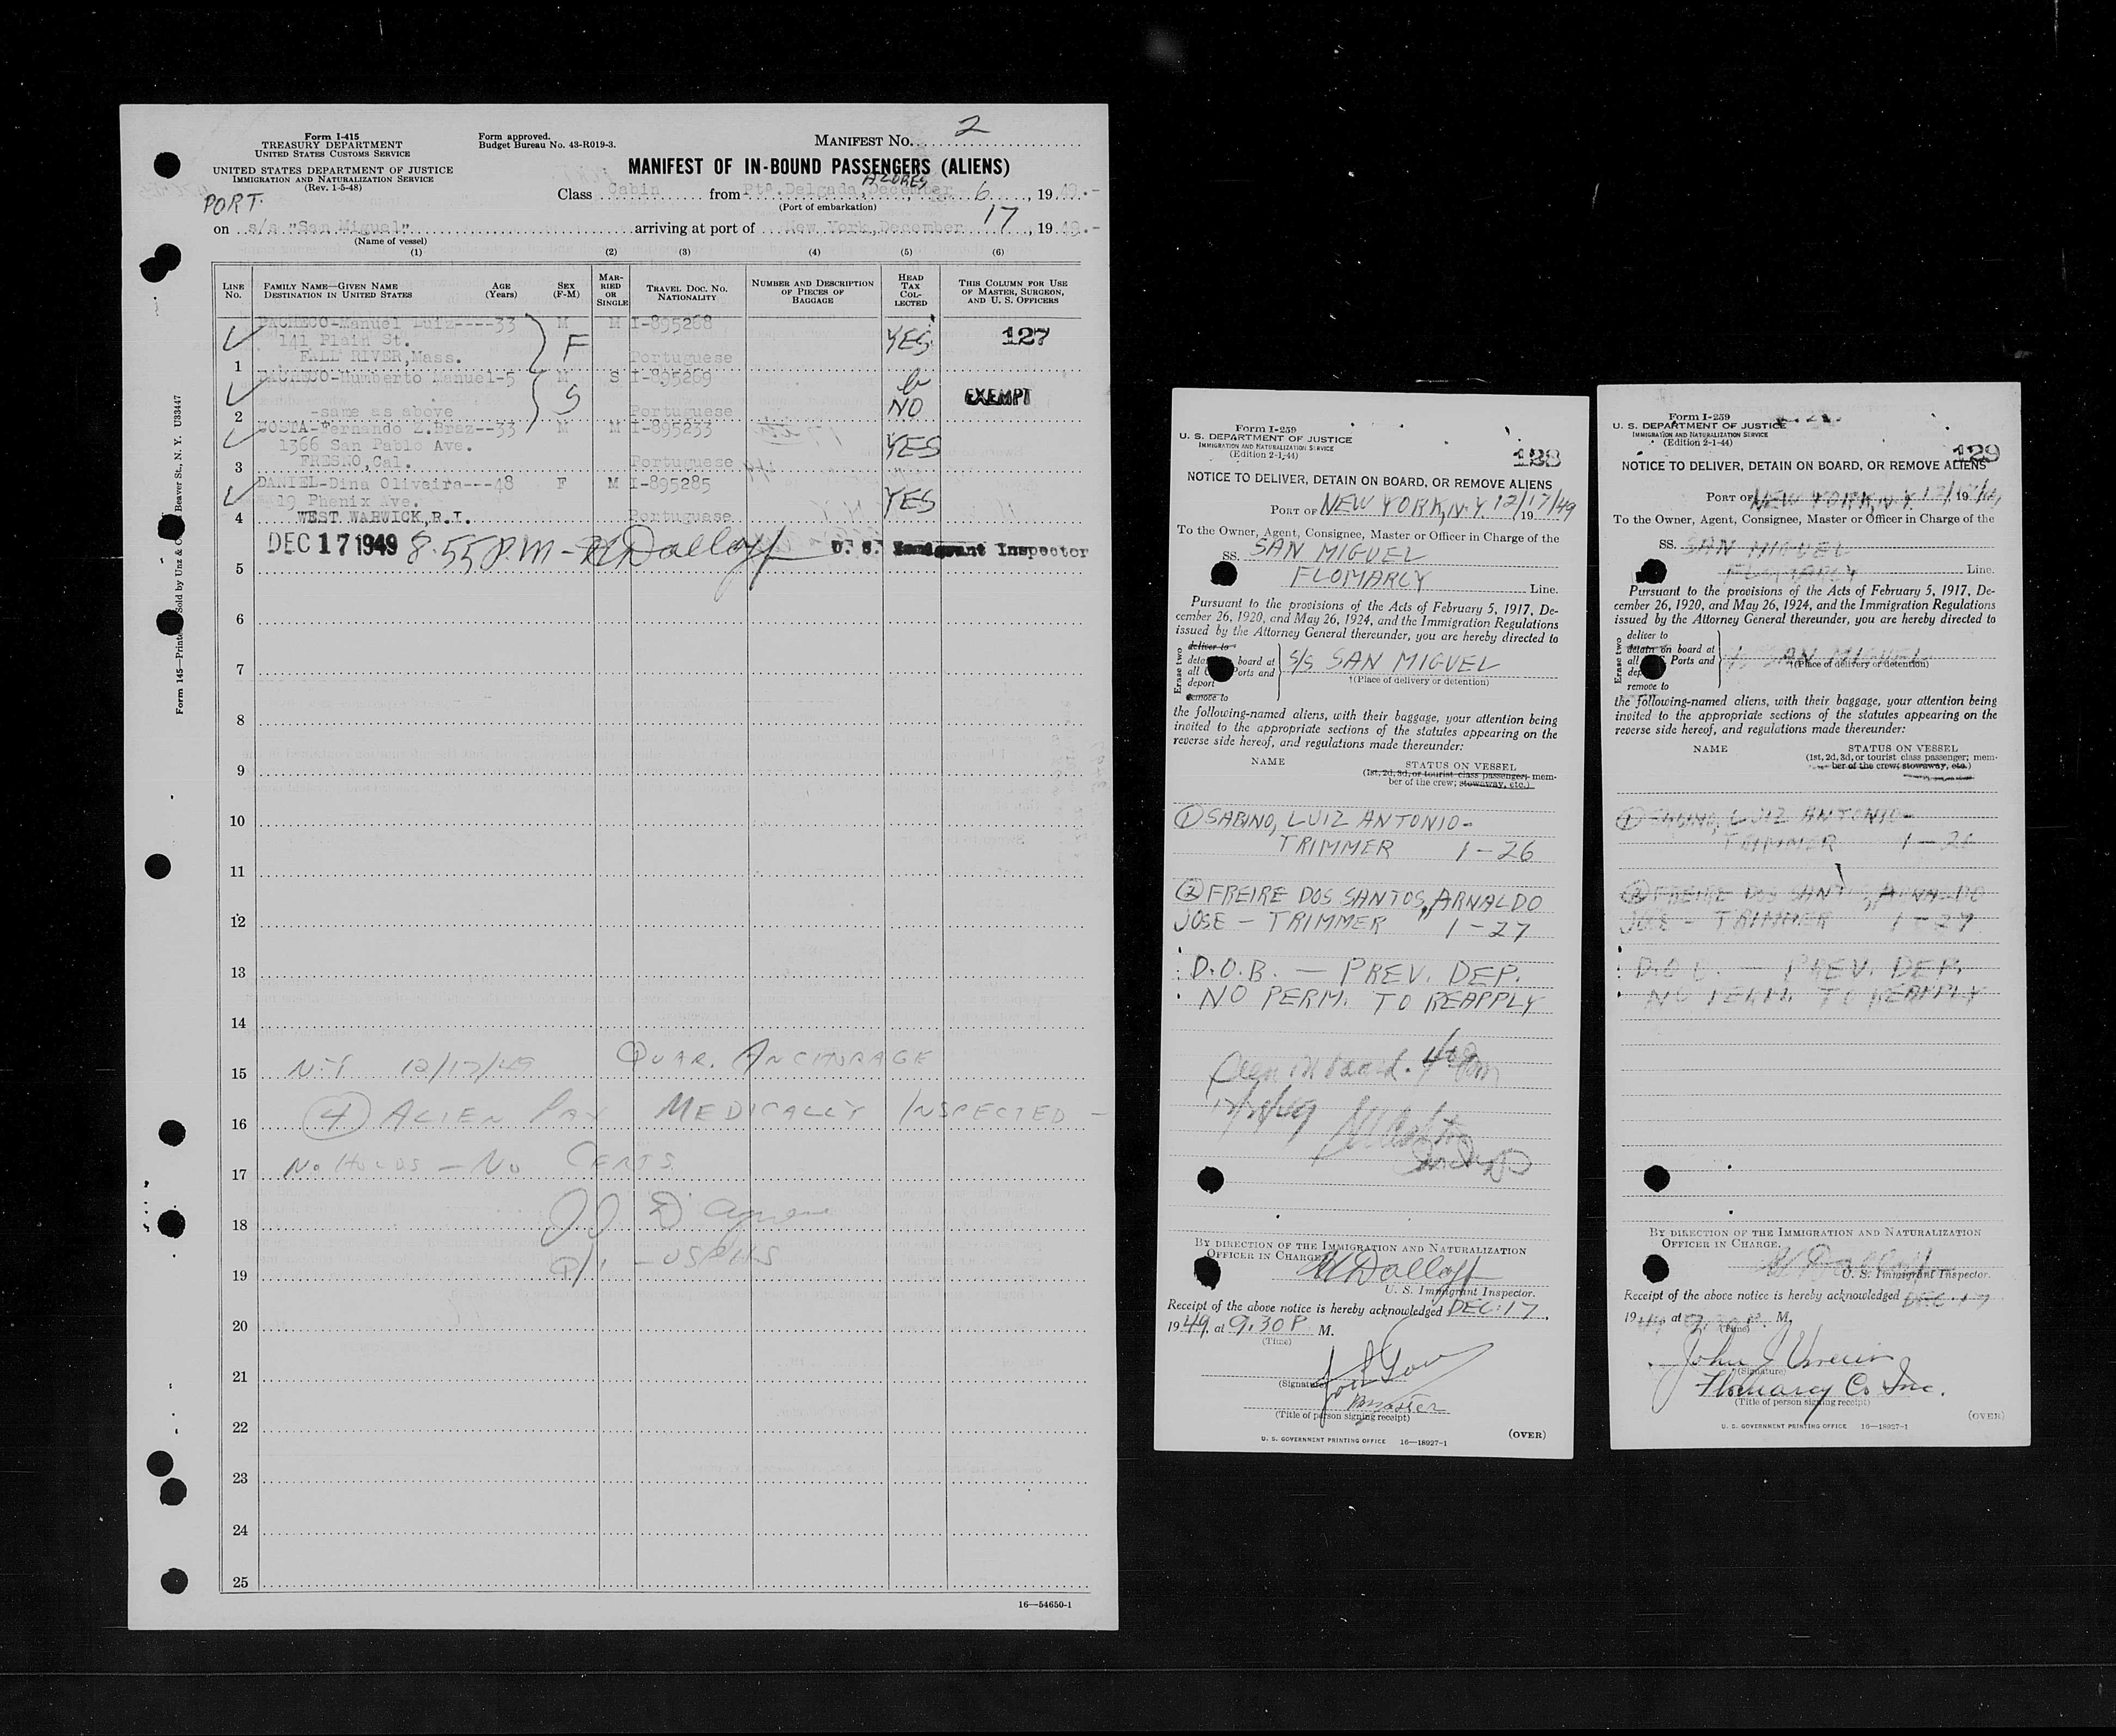 Form I-415
TREASURY DEPARTMENT
UNITED STATES CUSTOMS SERVICE
UNITED STATES DEPARTMENT OF JUSTICE
IMMIGRATION AND NATURALIZATION SERVICE
(Rev. 1-5-48)
Form approved.
Budget Bureau No. 43-R019-3.
MANIFEST No. 2
MANIFEST OF IN-BOUND PASSENGERS (ALIENS)
AZORES
Class Cabin from Ptª.Delgada, December 6, 1949.-
(Port of embarkation)
PORT.
on s/s "San Miguel" arriving at port of New York, December 17, 1949.-
(Name of vessel)
(1) (2) (3) (4) (5) (6)
LINE No.
FAMILY NAME—GIVEN NAME
DESTINATION IN UNITED STATES
AGE (Years)
SEX (F-M)
MARRIED OR SINGLE
TRAVEL DOC. NO.
NATIONALITY
NUMBER AND DESCRIPTION OF PIECES OF BAGGAGE
HEAD TAX COLLECTED
THIS COLUMN FOR USE OF MASTER, SURGEON, AND U. S. OFFICERS
PACHECO-Manuel Luiz----33 M M I-895268
141 Plain St. F YES 127
1 FALL RIVER,Mass. Portuguese
PACHECO-Humberto Manuel-5 M S I-895269
S EXEMPT
2 -same as above Portuguese NO
COSTA-Fernando E.Braz--33 M M I-895233
1366 San Pablo Ave. YES
3 FRESNO,Cal. Portuguese
DANIEL-Dina Oliveira---48 F M I-895285
19 Phenix Ave. YES
4 WEST WARWICK,R.I. Portuguese
DEC 17 1949 8:55 P.M - Dalloff U. S. Immigrant Inspector
5
6
7
8
9
10
11
12
13
14
15 N.Y. 12/17/49 QUAR. ANCHORAGE
16 (4) ALIEN PAX MEDICALLY INSPECTED -
17 NO HOLDS - NO CERTS.
18
19 USPHS
20
21
22
23
24
25
16—54650-1
Beaver St., N. Y. U33447
Form 145—
Sold by Unz &
Form I-259
U. S. DEPARTMENT OF JUSTICE
IMMIGRATION AND NATURALIZATION SERVICE
(Edition 2-1-44)
128
NOTICE TO DELIVER, DETAIN ON BOARD, OR REMOVE ALIENS
PORT OF NEW YORK, N.Y. 12/17/1949
To the Owner, Agent, Consignee, Master or Officer in Charge of the
SS. SAN MIGUEL
FLOMARCY Line.
Pursuant to the provisions of the Acts of February 5, 1917, De-
cember 26, 1920, and May 26, 1924, and the Immigration Regulations
issued by the Attorney General thereunder, you are hereby directed to
Erase two
deliver to
board at
all Ports and
deport
remove to
S/S SAN MIGUEL
†(Place of delivery or detention)
the following-named aliens, with their baggage, your attention being
invited to the appropriate sections of the statutes appearing on the
reverse side hereof, and regulations made thereunder:
NAME STATUS ON VESSEL
(1st, 2d, 3d, or tourist class passenger; mem-
ber of the crew; stowaway, etc.)
(1) SABINO, LUIZ ANTONIO-
TRIMMER 1-26
(2) FREIRE DOS SANTOS, ARNALDO
JOSE - TRIMMER 1-27
D.O.B. — PREV. DEP.
NO PERM. TO REAPPLY
Seen on board.
BY DIRECTION OF THE IMMIGRATION AND NATURALIZATION
OFFICER IN CHARGE.
Dalloff
U. S. Immigrant Inspector.
Receipt of the above notice is hereby acknowledged DEC. 17,
1949, at 9.30 P. M.
(Time)
(Signature)
Master
(Title of person signing receipt)
U. S. GOVERNMENT PRINTING OFFICE 16—18927-1
(OVER)
Form I-259
U. S. DEPARTMENT OF JUSTICE
IMMIGRATION AND NATURALIZATION SERVICE
(Edition 2-1-44)
129
NOTICE TO DELIVER, DETAIN ON BOARD, OR REMOVE ALIENS
PORT OF NEW YORK, N.Y. 12/17/1949
To the Owner, Agent, Consignee, Master or Officer in Charge of the
SS. SAN MIGUEL
FLOMARCY Line.
Pursuant to the provisions of the Acts of February 5, 1917, De-
cember 26, 1920, and May 26, 1924, and the Immigration Regulations
issued by the Attorney General thereunder, you are hereby directed to
Erase two
deliver to
detain on board at
all Ports and
remove to
SAN MIGUEL
†(Place of delivery or detention)
the following-named aliens, with their baggage, your attention being
invited to the appropriate sections of the statutes appearing on the
reverse side hereof, and regulations made thereunder:
NAME STATUS ON VESSEL
(1st, 2d, 3d, or tourist class passenger; mem-
ber of the crew; stowaway, etc.)
(1) SABINO, LUIZ ANTONIO-
TRIMMER 1-26
(2) FREIRE DOS SANTOS, ARNALDO
JOSE - TRIMMER 1-27
D.O.B. — PREV. DEP.
NO PERM. TO REAPPLY
BY DIRECTION OF THE IMMIGRATION AND NATURALIZATION
OFFICER IN CHARGE.
Dalloff
U. S. Immigrant Inspector.
Receipt of the above notice is hereby acknowledged DEC. 17
1949, at 9.30 P. M.
(Time)
John J
(Signature)
Flomarcy Co Inc.
(Title of person signing receipt)
U. S. GOVERNMENT PRINTING OFFICE 16—18927-1
(OVER)